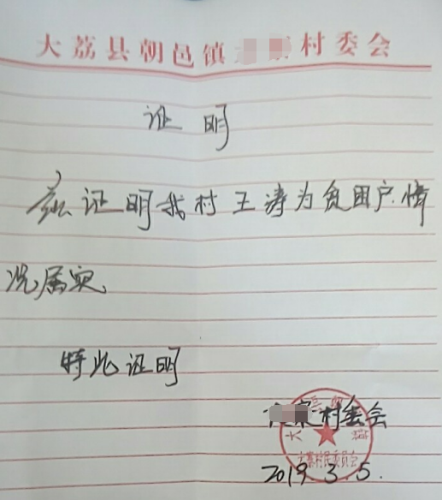 大荔县朝邑镇 村委会
证明
兹证明我村王涛为贫困户情
况属实
特此证明
村委会
2019.3.5.